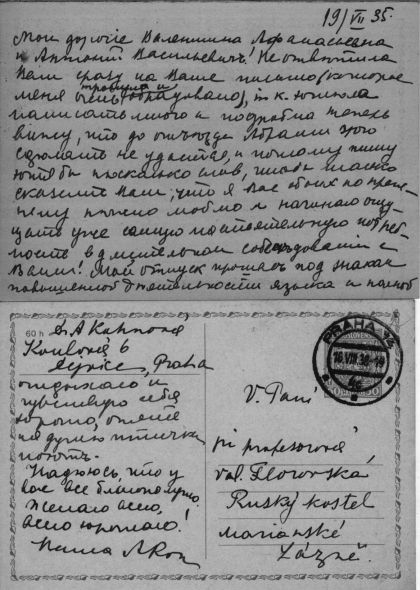 19/VII 35.
Мои дорогие Валентина Афанасьевна
и Антоний Васильевич! Не ответила
Вам сразу на Ваше письмо (которое
меня очень тронуло и обрадовало), т. к. хотела
написать много и подробно теперь
вижу, что до отъезда этого
сделать не удастся, и потому пишу
хотя бы несколько слов, чтобы только
сказать Вам, что я Вас обоих по преж-
нему нежно люблю и начинаю ощу-
щать уже самую настоятельную потреб-
ность в длительном собеседовании с
Вами! Мой отпуск прошел под знаком
повышенной деятельности языка и
60 h
Kouřová 6
Praha
отдыхаю и
чувствую себя
хорошо, опять
птички
поют.
Надеюсь, что у
вас все благополучно.
Желаю всего,
всего хорошего!
V. Paní
pí profesorová
Val. Florovská
Ruský kostel
Mariánské
Lázně.
PRAHA